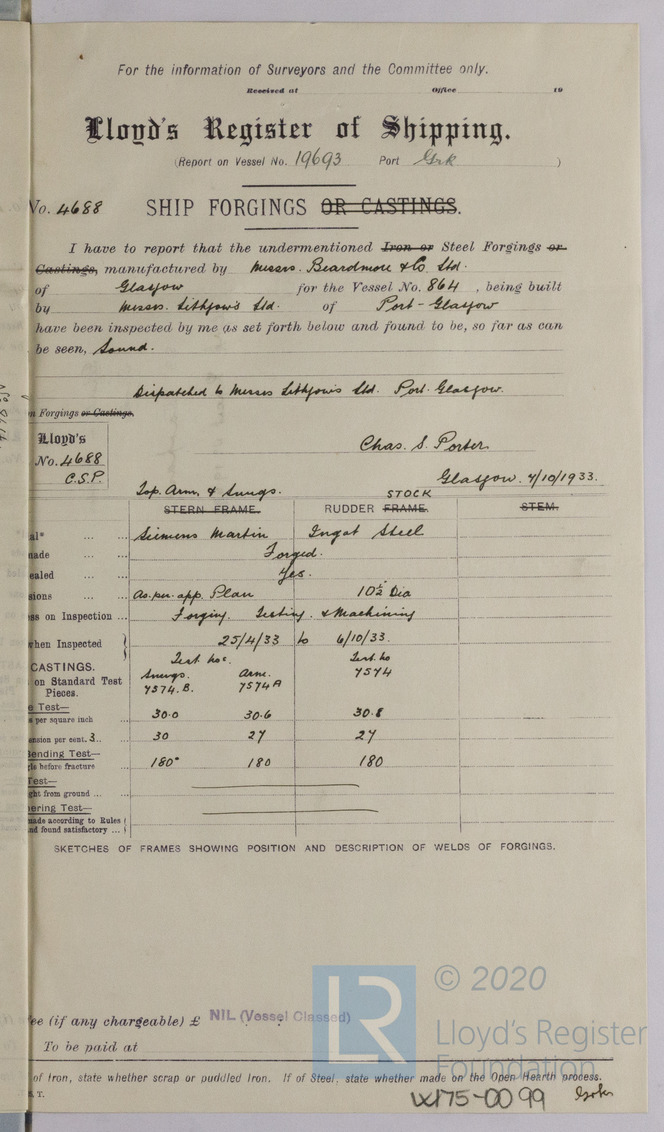 For the information of Surveyors and the Committee only.
Received at Office 19
Lloyd's Register of Shipping.
(Report on Vessel No. 19693 Port Grk )
No. 4688 SHIP FORGINGS OR CASTINGS.
I have to report that the undermentioned Iron or Steel Forgings or
Castings, manufactured by Messrs. Beardmore & Co. Ltd.
of Glasgow for the Vessel No. 864, being built
by Messrs. Lithgows Ltd. of Port-Glasgow
have been inspected by me as set forth below and found to be, so far as can
be seen, Sound.
Dispatched to Messrs Lithgows Ltd. Port-Glasgow.
n Forgings or Castings.
Lloyd's
No. 4688
C.S.P.
Chas. S. Porter.
Glasgow. 7/10/1933.
Top. Arm, & Snugs. STOCK
STERN FRAME. RUDDER FRAME. STEM.
al* Siemens Martin Ingot Steel
nade Forged.
ealed Yes.
sions As. per. app. Plan 10½ Dia
ss on Inspection Forging. Testing. & Machining
when Inspected 25/4/33 to 6/10/33.
CASTINGS. Test nos. Test. no
on Standard Test Snugs. Arm. 7574
Pieces. 7574.B. 7574A
e Test—
s per square inch 30.0 30.6 30.8
ension per cent. 3 30 27 27
Bending Test—
gle before fracture 180° 180 180
Test—
ght from ground
ering Test—
made according to Rules
nd found satisfactory
SKETCHES OF FRAMES SHOWING POSITION AND DESCRIPTION OF WELDS OF FORGINGS.
ee (if any chargeable) £ NIL (Vessel Classed)
To be paid at
of Iron, state whether scrap or puddled Iron. If of Steel, state whether made on the Open Hearth process.
T.
W175-0099
LR
© 2020
Lloyd's Register
Foundation